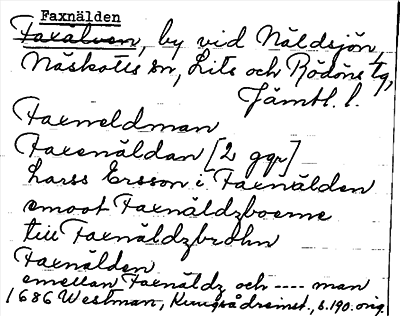 Faxnälden
Faxälven, by vid Näldsjön,
Näskotts sn, Lits och Rödöns tg,
Jämtl. l.
Faxneldman
Faxenäldan [2 ggr]
Larss Ersson i Faxnälden
emoot Faxnäldzboerne
till Faxnäldzbrohn
Faxnälden
emellan Faxnäldz och ---- man
1686 Westman, Kungsådreinst., s. 190. orig.